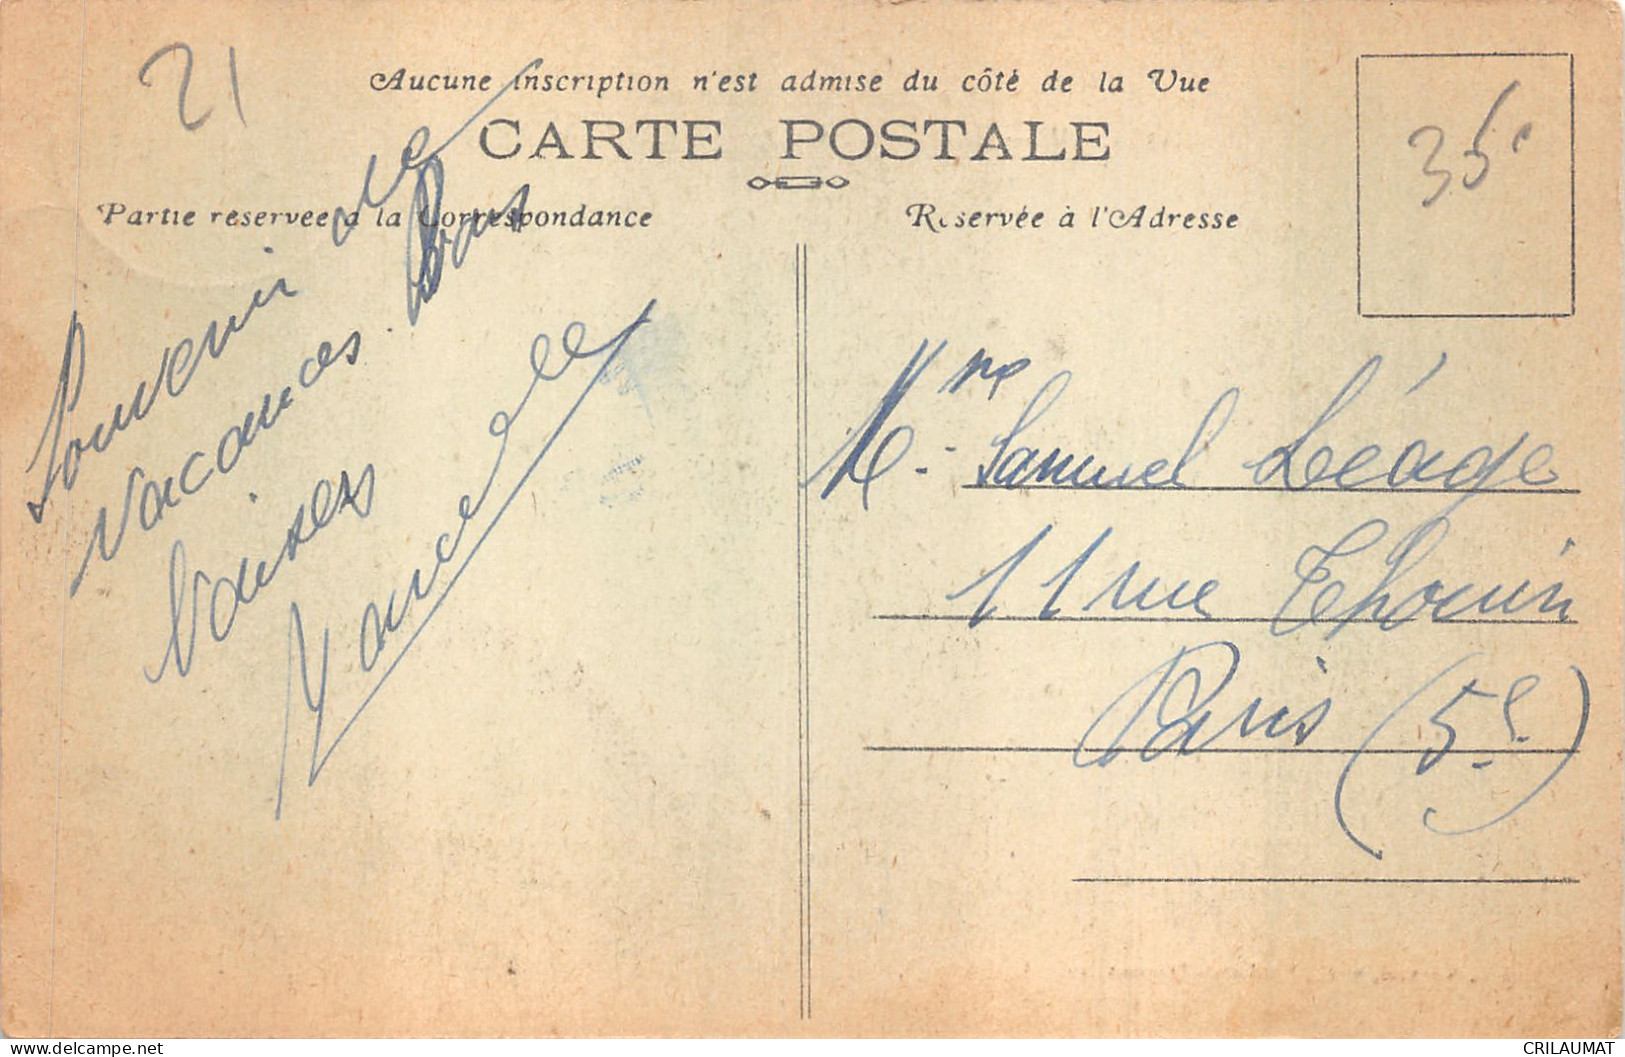 21
Aucune inscription n'est admise du côté de la Vue
CARTE POSTALE
Partie réservée à la Correspondance
Réservée à l'Adresse
35
Souvenir de
vacances. Bons
baisers
Marcelle
Mme Samuel Léage
11 rue Thouin
Paris (5e)
CRILAUMAT